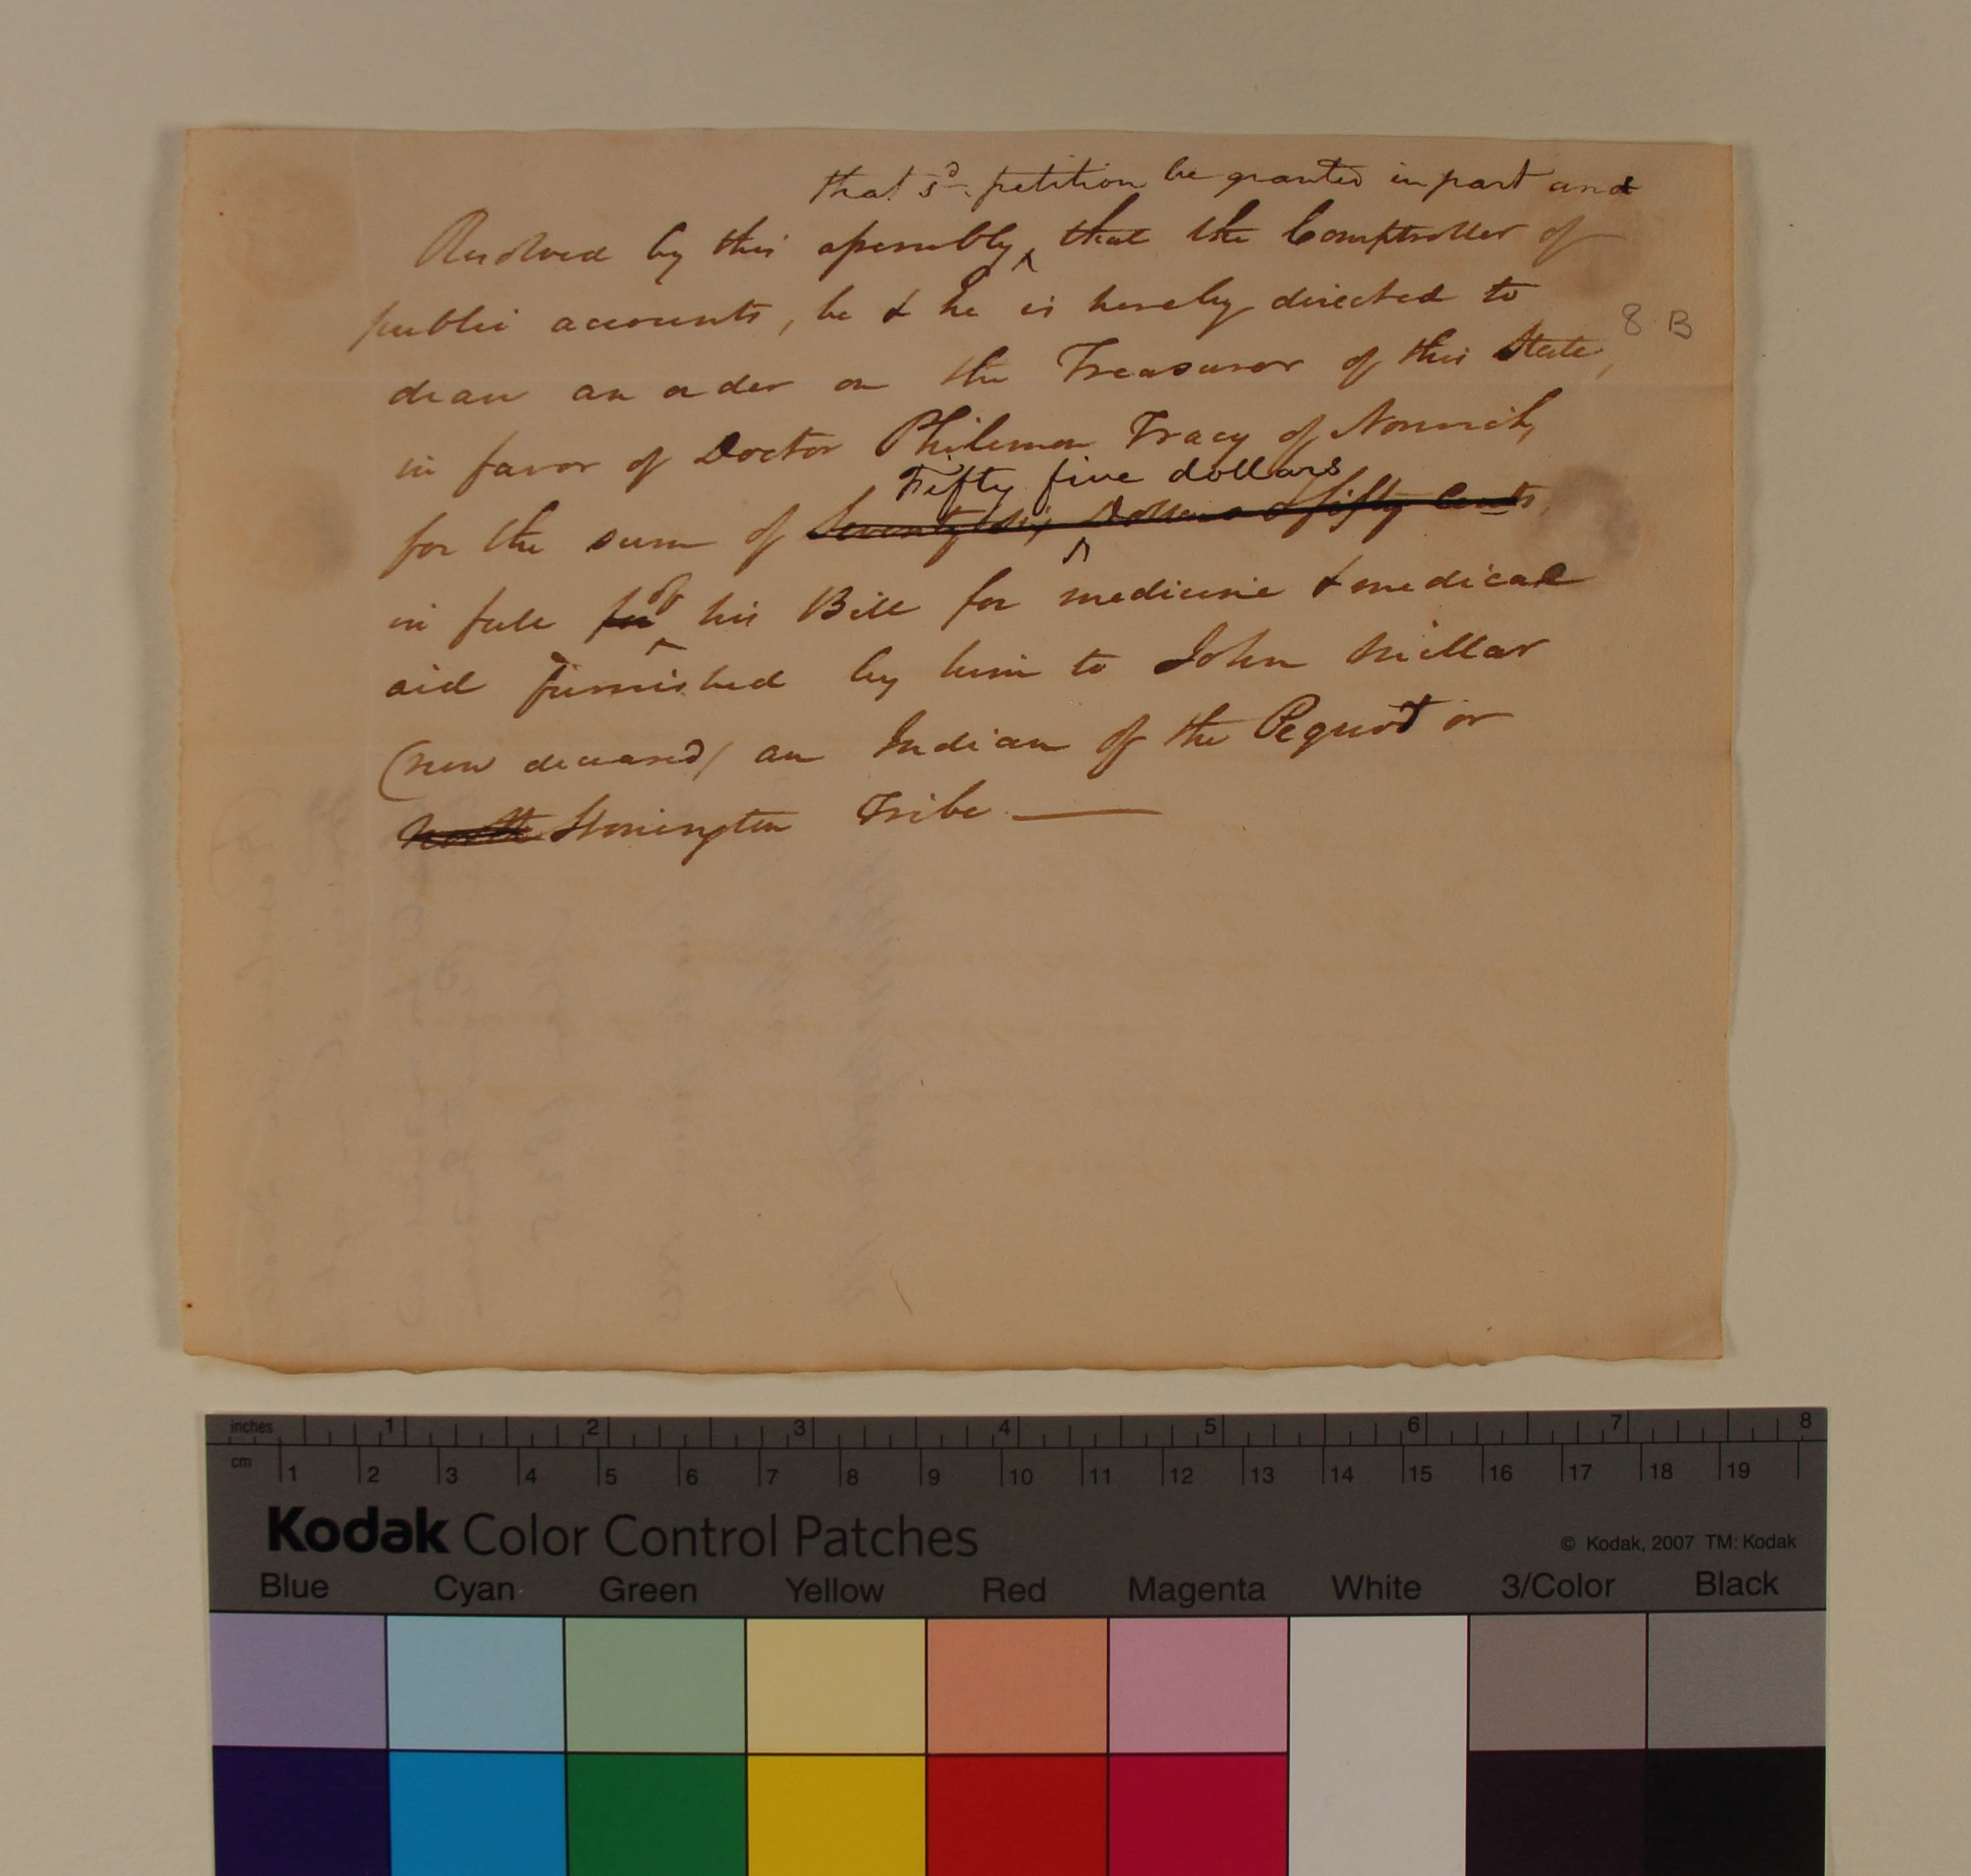 that sd. petition be granted in part and
Resolved by this assembly, ^ that the Comptroller of
public accounts, be & he is hereby directed to
8 B
draw an order on the Treasurer of this State,
in favor of Doctor Philemon Tracy of Norwich,
Fifty five dollars
for the sum of Seventy six Dollars & fifty Cents,
^
in full for of his Bill for medicine & medical
^
aid furnished by him to John Millar
(now deceased) an Indian of the Pequot or
North Stonington Tribe —
inches 1 2 3 4 5 6 7 8
cm 1 2 3 4 5 6 7 8 9 10 11 12 13 14 15 16 17 18 19
Kodak Color Control Patches
© Kodak, 2007 TM: Kodak
Blue Cyan Green Yellow Red Magenta White 3/Color Black